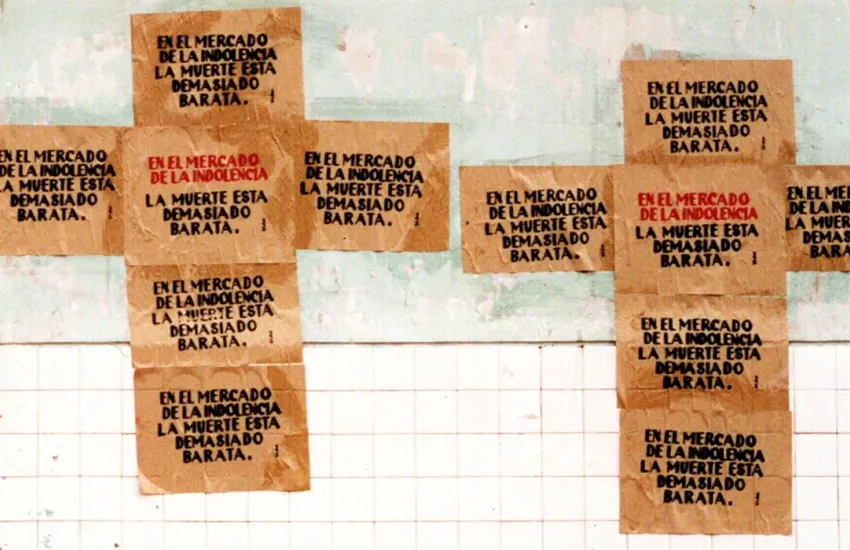 EN EL MERCADO
DE LA INDOLENCIA
LA MUERTE ESTA
DEMASIADO
BARATA.
EN EL MERCADO
DE LA INDOLENCIA
LA MUERTE ESTA
DEMASIADO
BARATA.
EN EL MERCADO
DE LA INDOLENCIA
LA MUERTE ESTA
DEMASIADO
BARATA.
EN EL MERCADO
DE LA INDOLENCIA
LA MUERTE ESTA
DEMASIADO
BARATA.
EN EL MERCADO
DE LA INDOLENCIA
LA MUERTE ESTA
DEMASIADO
BARATA.
EN EL MERCADO
DE LA INDOLENCIA
LA MUERTE ESTA
DEMASIADO
BARATA.
EN EL MERCADO
DE LA INDOLENCIA
LA MUERTE ESTA
DEMASIADO
BARATA.
EN EL MERCADO
DE LA INDOLENCIA
LA MUERTE ESTA
DEMASIADO
BARATA.
EN EL MERCADO
DE LA INDOLENCIA
LA MUERTE ESTA
DEMASIADO
BARATA.
EN EL
DE LA
LA MUERTE
EN EL MERCADO
DE LA INDOLENCIA
LA MUERTE ESTA
DEMASIADO
BARATA.
EN EL MERCADO
DE LA INDOLENCIA
LA MUERTE ESTA
DEMASIADO
BARATA.